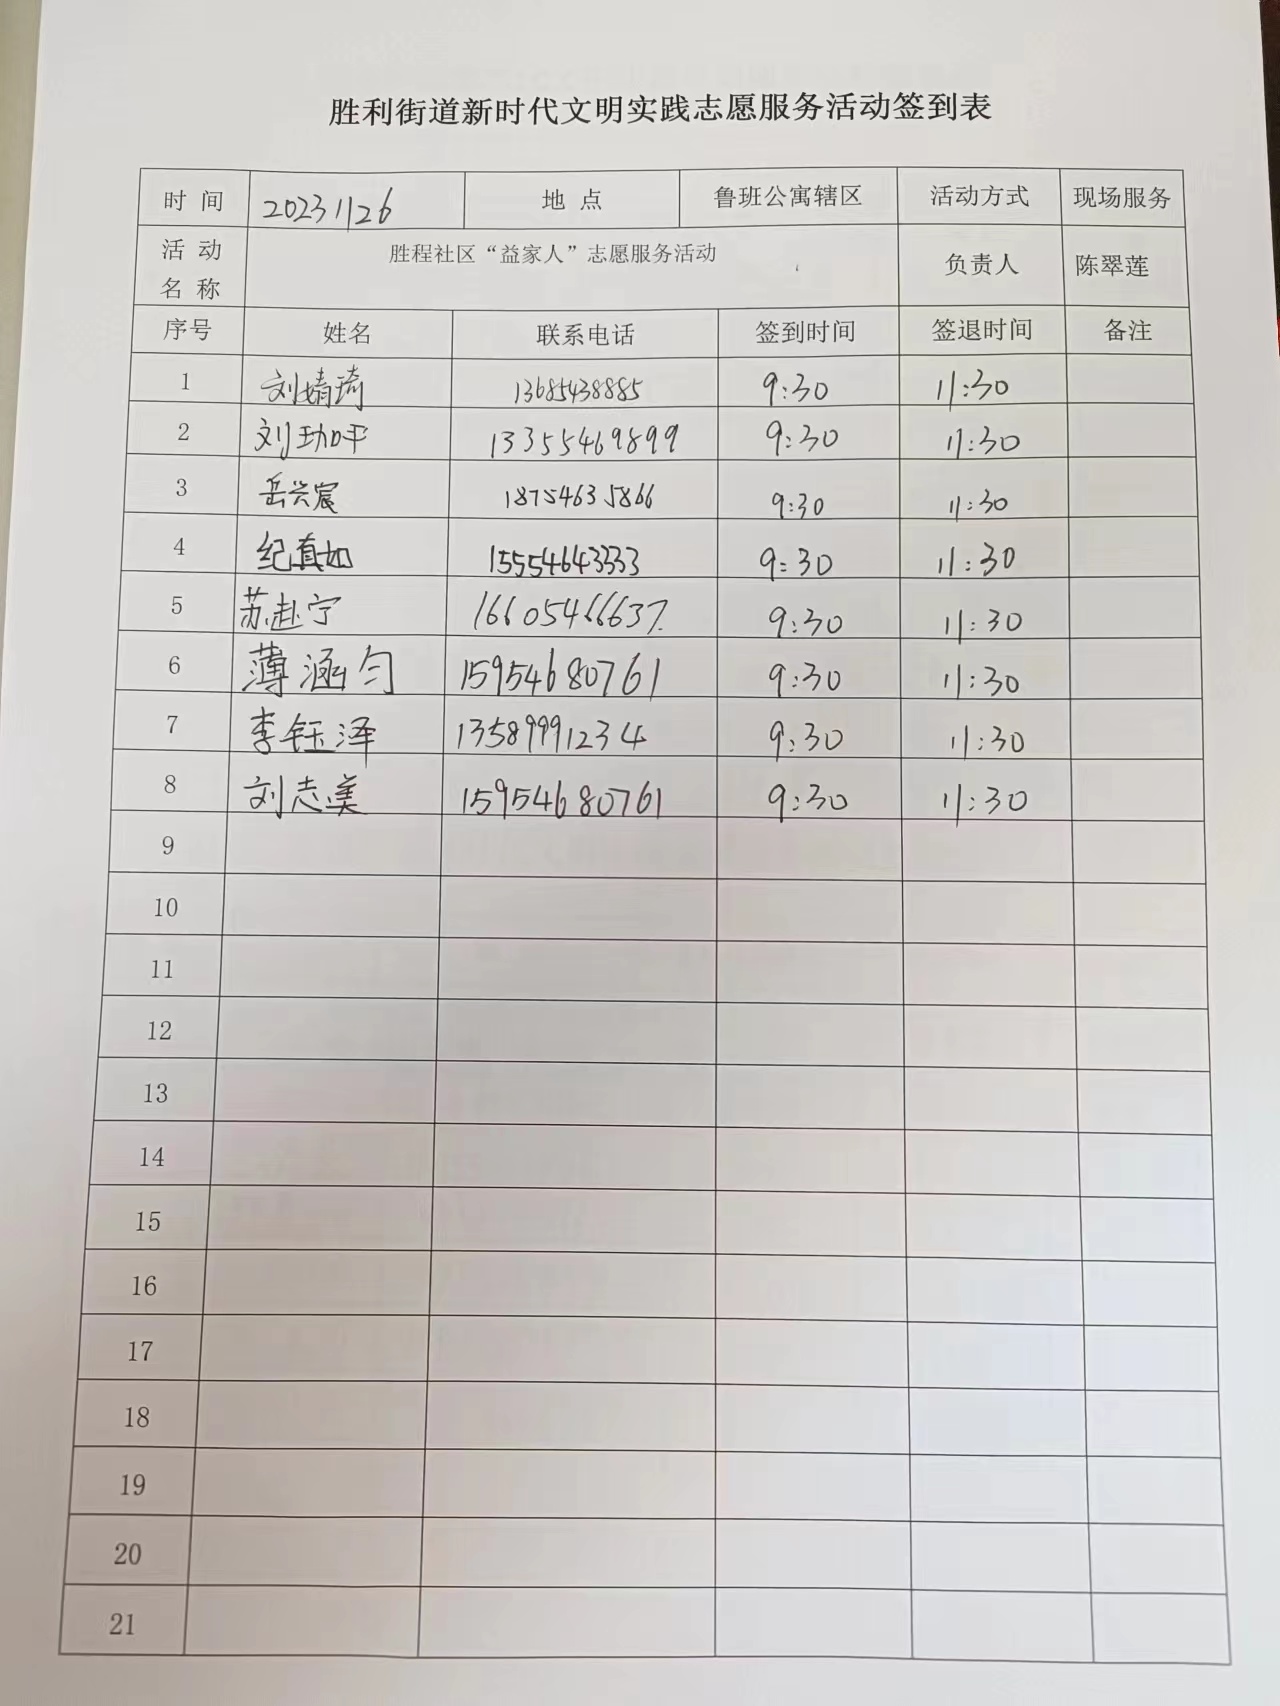 胜利街道新时代文明实践志愿服务活动签到表
时 间 20231126 地 点 鲁班公寓辖区 活动方式 现场服务
活 动 名 称 胜程社区“益家人”志愿服务活动 负责人 陈翠莲
序号 姓名 联系电话 签到时间 签退时间 备注
1 刘婧琦 13685438885 9:30 11:30
2 刘 13355469899 9:30 11:30
3 岳兴宸 18754635866 9:30 11:30
4 纪真如 15554643333 9:30 11:30
5 苏赴宁 16605466637 9:30 11:30
6 薄涵匀 15954680761 9:30 11:30
7 李钰泽 13589991234 9:30 11:30
8 刘志美 15954680761 9:30 11:30
9
10
11
12
13
14
15
16
17
18
19
20
21